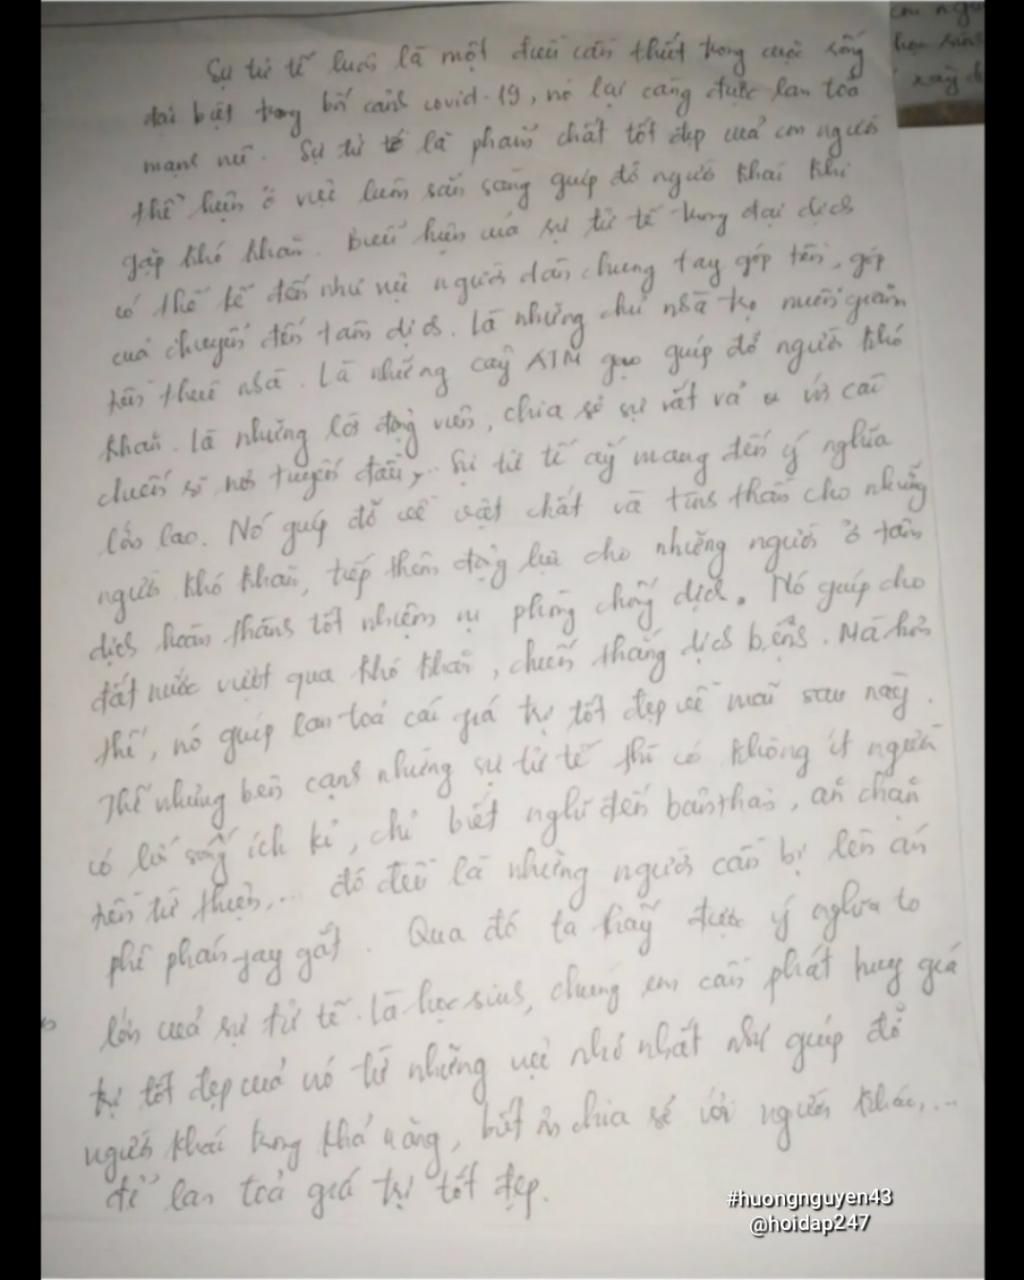 Sự tử tế luôn là một điều cần thiết trong cuộc sống
đặc biệt trong bối cảnh covid-19, nó lại càng được lan toả
mạnh mẽ. Sự tử tế là phẩm chất tốt đẹp của con người
thể hiện ở việc luôn sẵn sàng giúp đỡ người khác khi
gặp khó khăn. Biểu hiện của sự tử tế trong đại dịch
có thể kể đến như việc người dân chung tay góp tiền, góp
của chuyển đến tâm dịch. Là những chủ nhà trọ miễn giảm
tiền thuê nhà. Là những cây ATM gạo giúp đỡ người khó
khăn. Là những lời động viên, chia sẻ sự vất vả với các
chiến sĩ nơi tuyến đầu,... Sự tử tế ấy mang đến ý nghĩa
lớn lao. Nó giúp đỡ về vật chất và tinh thần cho những
người khó khăn, tiếp thêm động lực cho những người ở tâm
dịch hoàn thành tốt nhiệm vụ phòng chống dịch. Nó giúp cho
đất nước vượt qua khó khăn, chiến thắng dịch bệnh. Mà hơn
thế, nó giúp lan toả cái giá trị tốt đẹp về mai sau này.
Thế nhưng bên cạnh những sự tử tế thì có không ít người
có lối sống ích kỉ, chỉ biết nghĩ đến bản thân, ăn chặn
tiền từ thiện,... đó đều là những người cần bị lên án
phê phán gay gắt. Qua đó ta thấy được ý nghĩa to
lớn của sự tử tế. Là học sinh, chúng em cần phát huy giá
trị tốt đẹp của nó từ những việc nhỏ nhất như giúp đỡ
người khác trong khả năng, biết chia sẻ với người khác,...
để lan toả giá trị tốt đẹp.
#huongnguyen43
@hoidap247